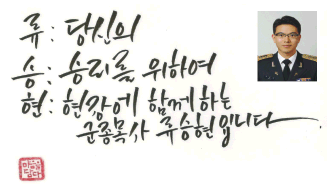 류: 당신의
승: 승리를 위하여
현: 현장에 함께하는
군종목사 류승현입니다